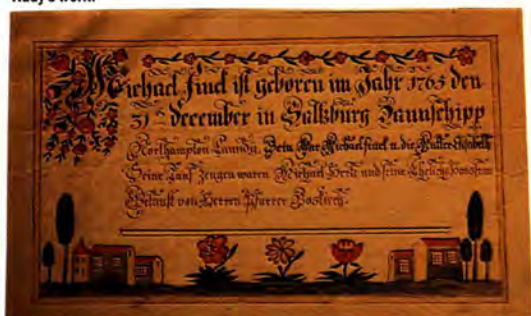 Michael Finel ist geboren im Jahr 1765 den
31ten December in Saltzburg Taunschipp
Northampton Caunty, Sein Var Michael Finel u. die Mutter Elisabeth
Seine Tauf Zeugen waren Michael und seine Ehelich
Getauft von Herren Pfarrer